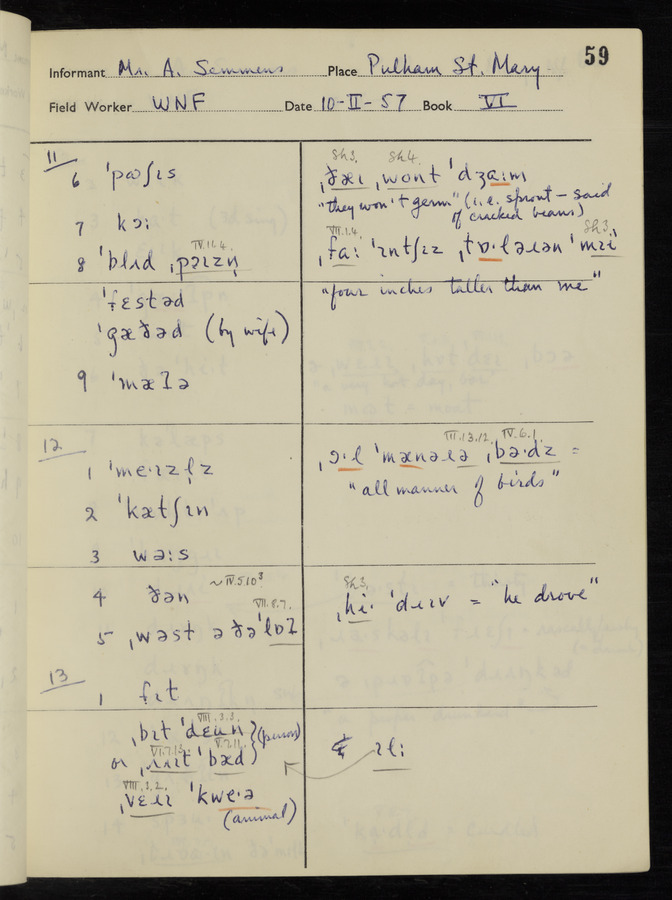 59
Informant Mr. A. Semmens Place Pulham St. Mary
Field Worker WNF Date 10-II-57 Book VI
11
6 ˈpɷʃɪs
7 kɔː
IV.11.4.
8 ˈblɪd ˌpəɪzn̩
ˈfɛstəd
ˈgæðəd (by wife)
9 ˈmæɪə
12
1 ˈmeˑɪzl̩z
2 ˈkætʃɪn
3 wəːs
~ IV.5.10³
4 ðən
VII.8.7.
5 ˌwəst ə ðəˈlɒɪ
13
1 fɪt
VIII.3.3.
ˌbɪt ˈdɛʉn (person)
VI.7.13. V.7.11.
or ˌɹɪɪt ˈbæd
VIII.3.2.
ˌvɛɹɪ ˈkweˑə
(animal)
Sh3. Sh4.
ˌðæɪ ˌwont ˈdʒaːm
"they won't germ" (i.e. sprout – said
of cracked beans)
VII.1.4. Sh3.
ˌfaː ˈɪntʃɪz ˌtɒˑləɹən ˈmɪi
"four inches taller than me"
VII.13.12. IV.6.1.
ˌɔˑl ˈmænəɹə ˌbəˑdz =
"all manner of birds"
Sh3.
ˌhiˑ ˈdɹɪv = "he drove"
ɪlː